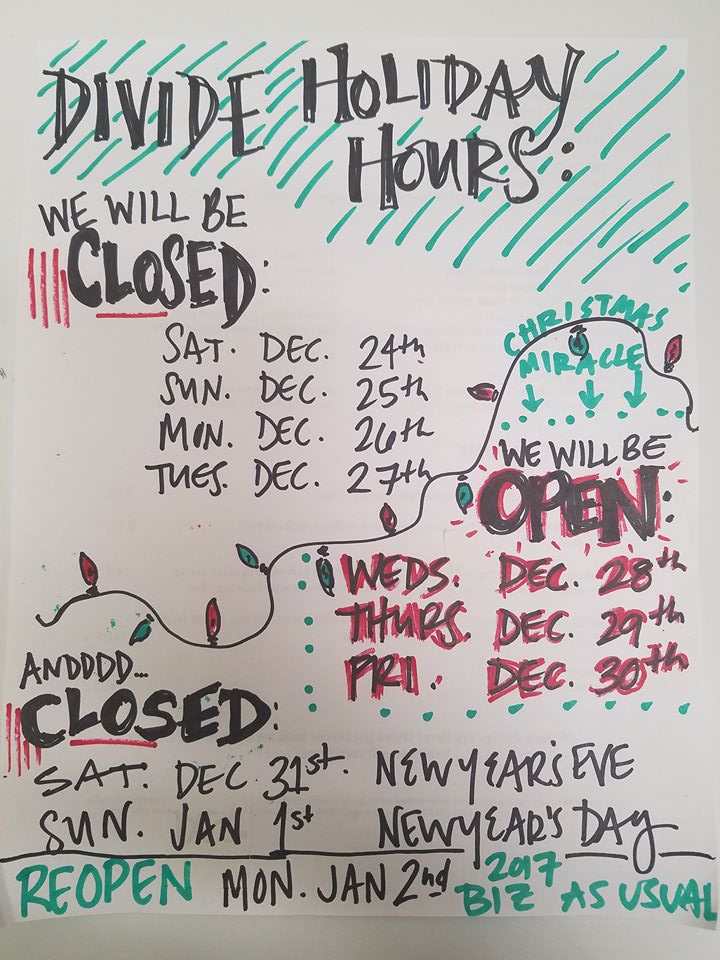 DIVIDE HOLIDAY
HOURS:
WE WILL BE
CLOSED:
SAT. DEC. 24th
SUN. DEC. 25th
MON. DEC. 26th
TUES. DEC. 27th
CHRISTMAS
MIRACLE
WE WILL BE
OPEN:
WEDS. DEC. 28th
THURS. DEC. 29th
FRI. DEC. 30th
ANDDDD...
CLOSED:
SAT. DEC 31st. NEW YEAR'S EVE
SUN. JAN 1st NEW YEAR'S DAY
REOPEN MON. JAN 2nd 2017
BIZ AS USUAL